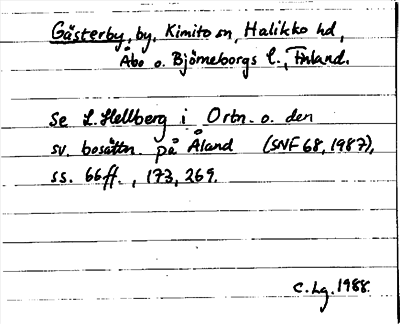 Gästerby, by, Kimito sn, Halikko hd,
Åbo o. Björneborgs l., Finland.
Se L. Hellberg i Ortn. o. den
sv. bosättn. på Åland (SNF 68, 1987),
ss. 66ff., 173, 269.
C. Lg. 1988.